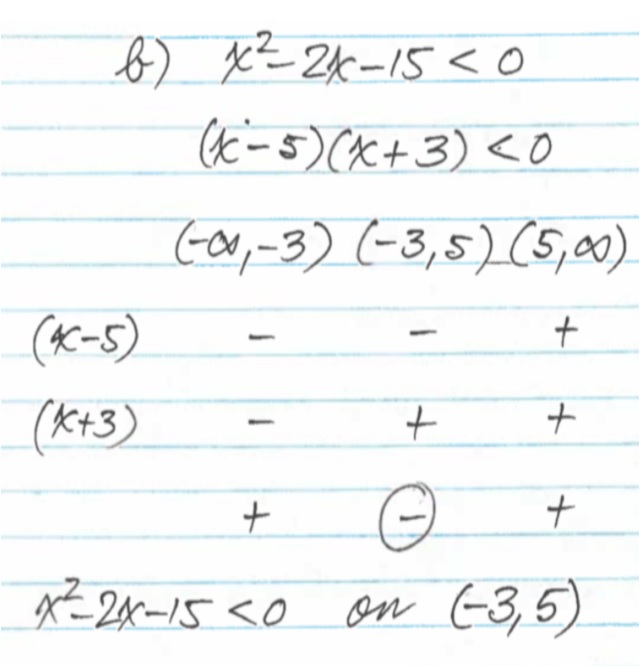 b) x²-2x-15 < 0
(x-5)(x+3) < 0
(-∞,-3) (-3,5) (5,∞)
(x-5) - - +
(x+3) - + +
+ - +
x²-2x-15 < 0 on (-3,5)